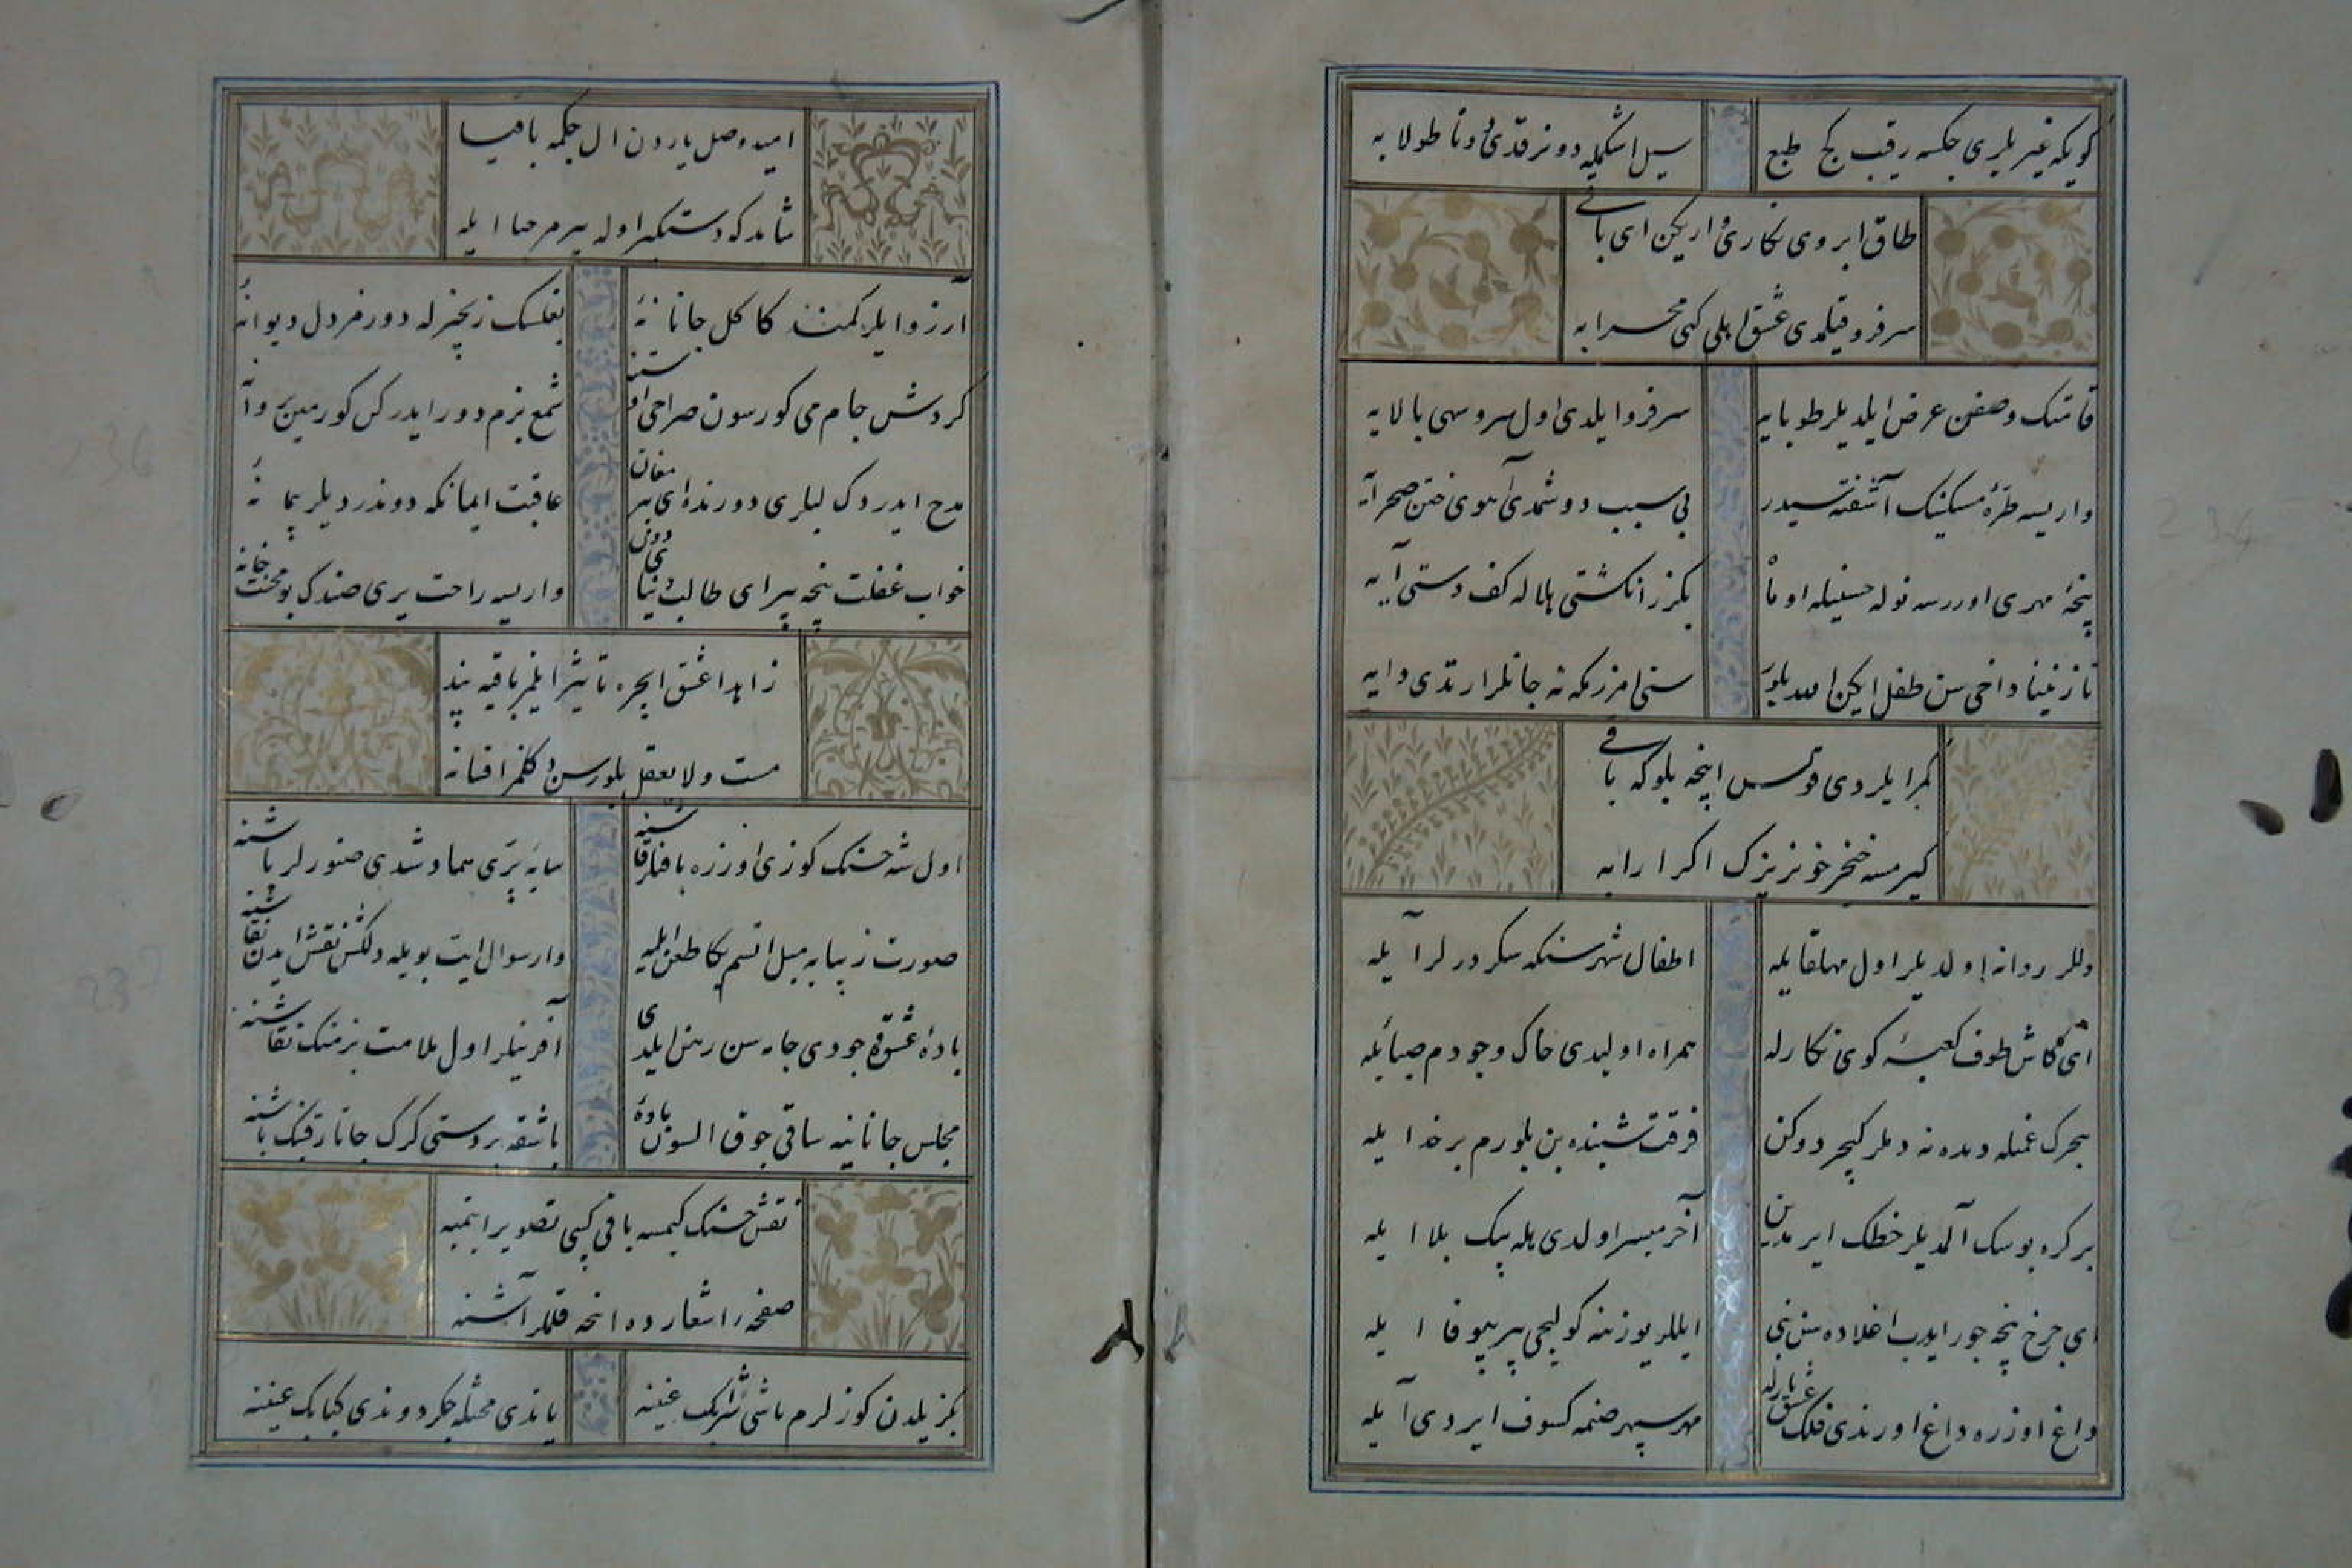 كویكه غیریلری چكسه رقیب كج طبع سیل اشكمله دونر قدی دوتا طولابه
طاق ابروی نكاری اریكن ای باقی
سرفرو قیلمدی عشق اهلی كبی محرابه
قامتك وصفن عرض ایلدیلر طوبایه سرفرو ایلدی اول سرو سهی بالایه
واریسه طرهٔ مسكینك آشفته سیدر بی سبب دوشمدی آهوی ختن صحرایه
پنجهٔ مهری اوررسه نوله حسنیله او ماه بكزر انكشتی هلاله كف دستی آیه
نازنینا داخی سن طفل ایكن الله بلور سنی امزركه نه جانلر ارتدی دایه
كیرمسه خنجر خونریزك اكر ارایه
دللر روانه اولدیلر اول مهلقایله اطفال شهر سنكه سكردرلر آیله
ای كاش طوف كعبهٔ كوی نكارله همراه اولیدی خاك وجودم صبایله
هجرك غمیله دیده نه دملر كچر دوكن فرقت شبنده بن بلورم بر خدا ایله
بر كره بوسك آلمدیلر خطك ایرمدین آخر میسر اولدی هله بیك بلا ایله
ای چرخ نیجه جور ایدرب اغلاده سن بنی ایللر یوزینه كولیجی پر بیوفا ایله
داغ اوزره داغ اورندی فلك عشق یارله مهر سپهر صنمه كسوف ایردی آیله
امید وصل یاردن ال چكمه باقیا
شاید كه دستكیر اوله پیرم حیا ایله
آرزو ایلر كمند كاكل جانانهٔ بغلسك زنجیرله دورمز دل دیوانهٔ
كردش جام می كورسون صراحی اوستنه شمع بزم دور ایدر كل كورمین پروانهٔ
مدح ایدردك لبلری دورنده ای پیر مغان عاقبت ایمانكه دوندردیلر پیمانهٔ
خواب غفلت نیجه بیر ای طالب دنیای دون واریسه راحت یری صندك بو محنتخانهٔ
زاهدا عشق اهجره تاثیر ایلمز باقیه پند
مست ولایعقل بلورسن دكلمز افسانه
اول شه حسنك كوزی اوزره باقلر قاشنه سایهٔ پر هما دشدی صنورلر باشنه
صورت زیبایه میل اتسم بكا طعن ایلمه وار سوال ایت بویله دلكش نقش ایدن نقاشنه
بادهٔ عشقه وجودی جامه سن رهن ایلدی آفرینلر اول ملامت بزمنك نقاشنه
مجلس جانانیه ساقی چوق السون باده باشقه بر دستی كرك جانا رقیبك باشنه
نقش حسنك كیمسه باقی كبی تصویر ایتمیه
صفحهٔ اشعارده انجه قلملر آشنه
بكزیلدن كوزلرم یاشی شرابك عیننه یاندی محنتله جكر دوندی كبابك عیننه